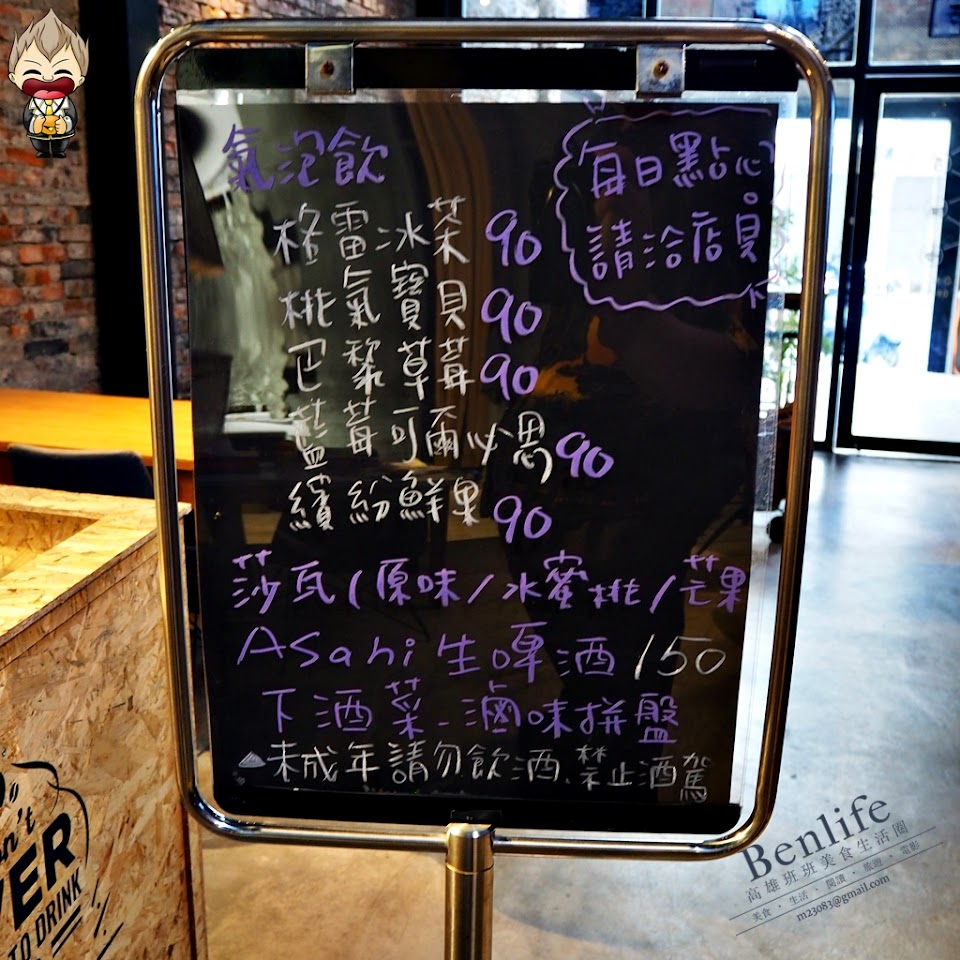 氣泡飲
每日點心
請洽店員
格雷冰茶 90
桃氣寶貝 90
巴黎草莓 90
藍莓可爾必思 90
繽紛鮮果 90
莎瓦(原味/水蜜桃/芒果
Asahi生啤酒 150
下酒菜-滷味拼盤
未成年請勿飲酒、禁止酒駕
VER
TO DRINK
Benlife
高雄班班美食生活圈
美食・生活・閱讀・旅遊・電影
m23083@gmail.com